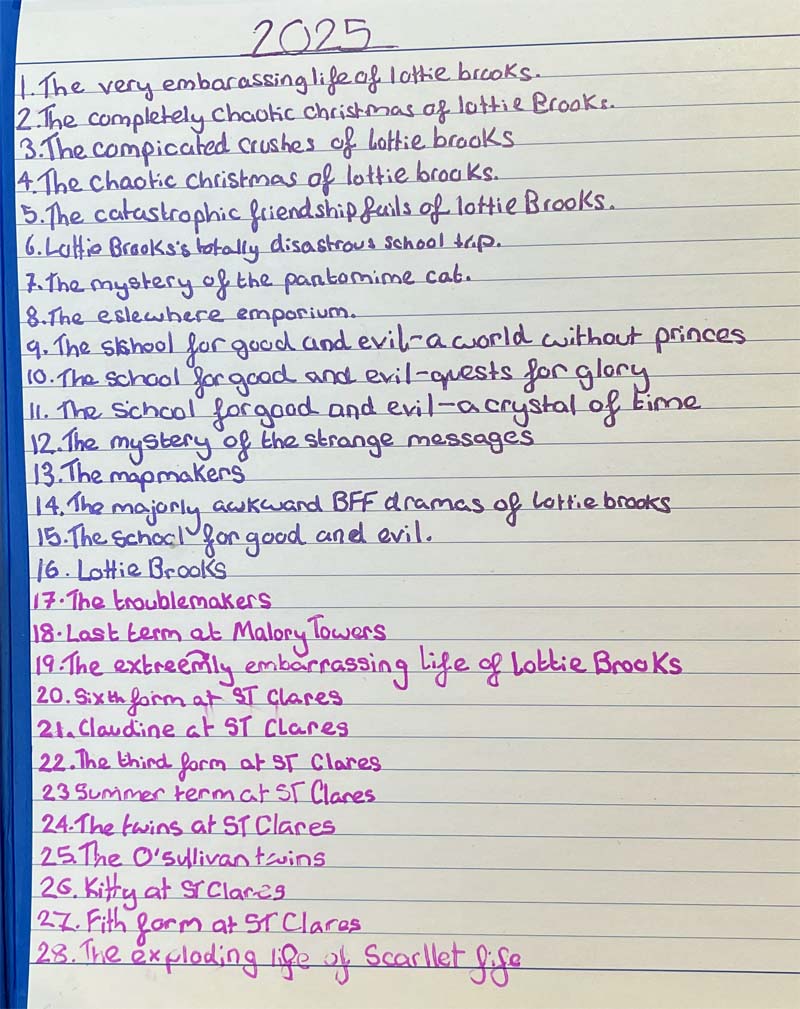 2025
1. The very embarassing life of lottie brooks.
2. The completely chaotic christmas of lottie Brooks.
3. The compicated crushes of lottie brooks
4. The chaotic christmas of lottie brooks.
5. The catastrophic friendship fails of lottie Brooks.
6. Lottie Brooks's totally disastrous school trip.
7. The mystery of the pantomime cat.
8. The eslewhere emporium.
9. The skhool for good and evil-a world without princes
10. The school for good and evil-quests for glory
11. The school for good and evil-a crystal of time
12. The mystery of the strange messages
13. The mapmakers
14. The majorly awkward BFF dramas of lottie brooks
15. The school for good and evil.
16. Lottie Brooks
17. The troublemakers
18. Last term at Malory Towers
19. The extreemly embarrassing life of Lottie Brooks
20. Sixth form at ST Clares
21. Claudine at ST Clares
22. The third form at ST Clares
23 Summer term at ST Clares
24. The twins at ST Clares
25. The O'sullivan twins
26. Kitty at ST Clares
27. Fith form at ST Clares
28. The exploding life of Scarllet fife